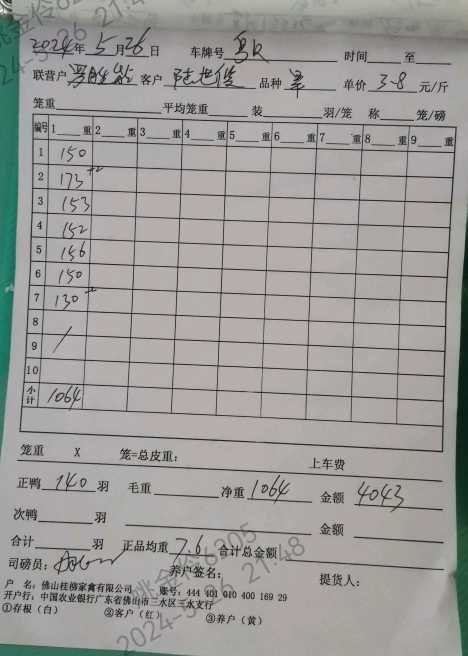 2024年5月26日 车牌号 时间 至
联营户 客户 陆世俊 品种 单价 3-8 元/斤
笼重 平均笼重 装 羽/笼 称 笼/磅
编号 1 重 2 重 3 重 4 重 5 重 6 重 7 重 8 重 9 重
1 150
2 173 +2
3 153
4 152
5 156
6 150
7 130
8
9 /
10
小计 1064
笼重 X 笼=总皮重: 上车费
正鸭 140 羽 毛重 净重 1064 金额 4043
次鸭 羽 金额
合计 羽 正品均重 7.6 合计总金额
司磅员: 养户签名: 提货人:
户 名: 佛山桂柳家禽有限公司 账号: 444 401 010 400 169 29
开户行: 中国农业银行广东省佛山市三水区三水支行
①存根(白) ②客户(红) ③养户(黄)
姚金伶6205
2024-5-26 21:48